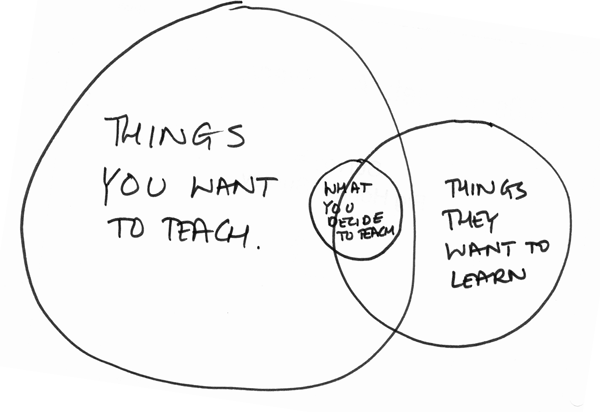 THINGS
YOU WANT
TO TEACH.
WHAT
YOU
DECIDE
TO TEACH
THINGS
THEY
WANT TO
LEARN